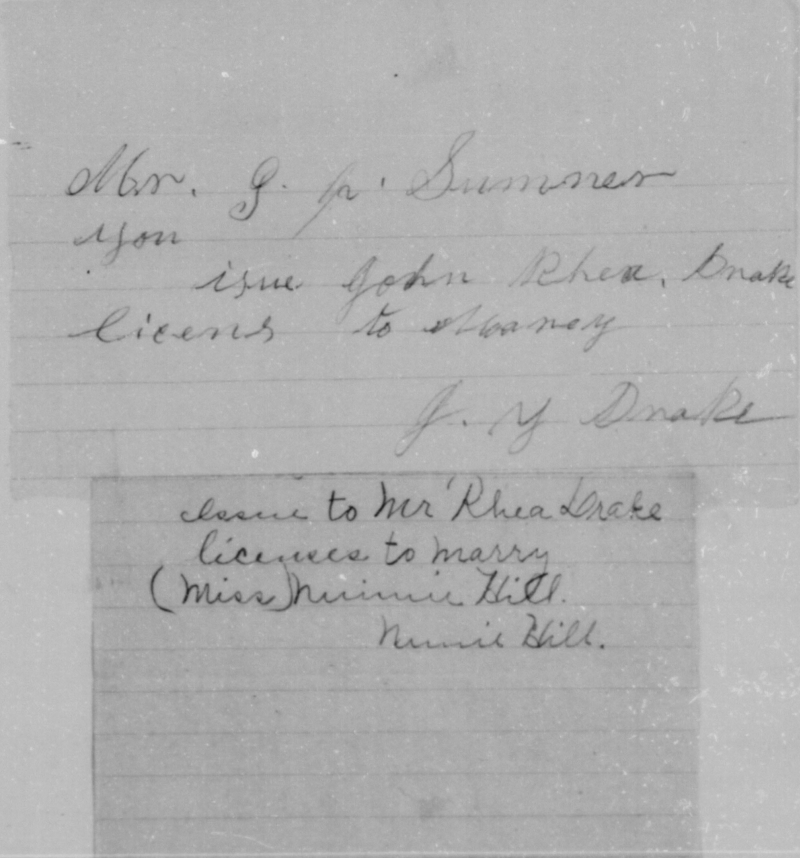 Mr. G. p. Sumner
you
isue John Rhea. Drake
licens to Marey
J. Y Drake
Issue to Mr Rhea Drake
licenses to marry
(Miss) Minnie Hill.
Minnie Hill.